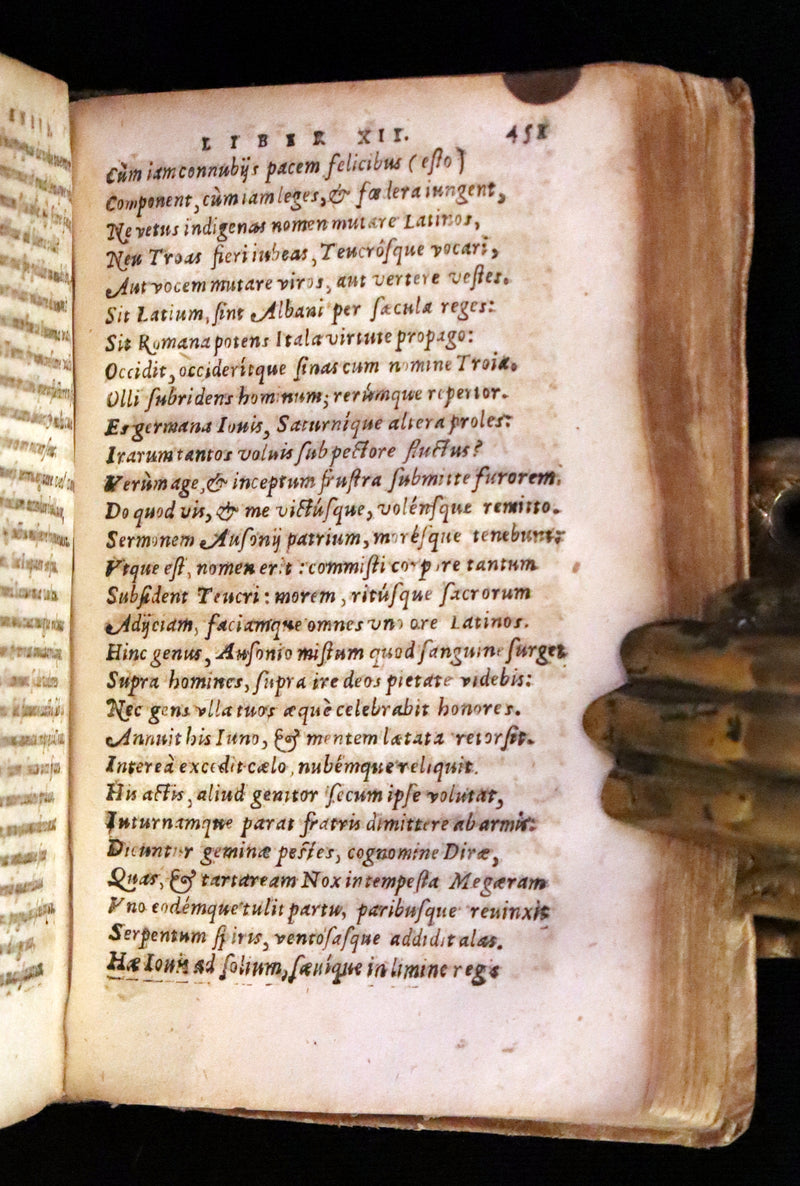 LIBER XII. 451
Cùm iam connubijs pacem felicibus (esto)
Component, cùm iam leges, & fœdera iungent,
Ne vetus indigenas nomen mutare Latinos,
Neu Troas fieri iubeas, Teucrósque vocari,
Aut vocem mutare viros, aut vertere vestes.
Sit Latium, sint Albani per sæcula reges:
Sit Romana potens Itala virtute propago:
Occidit, occiderítque sinas cum nomine Troia.
Olli subridens hominum, rerúmque repertor.
Es germana Iouis, Saturníque altera proles:
Irarum tantos voluis sub pectore fluctus?
Verùm age, & inceptum frustra submitte furorem.
Do quod vis, & me victúsque, volénsque remitto.
Sermonem Ausonij patrium, morésque tenebunt:
Vtque est, nomen erit: commisti corpore tantum
Subsident Teucri: morem, ritúsque sacrorum
Adijciam, faciamque omnes vno ore Latinos.
Hinc genus, Ausonio mistum quod sanguine surget
Supra homines, supra ire deos pietate videbis:
Nec gens vlla tuos æquè celebrabit honores.
Annuit his Iuno, & mentem lætata retorsit.
Intereà excedit cælo, nubémque reliquit.
His actis, aliud genitor secum ipse volutat,
Iuturnamque parat fratris dimittere ab armis:
Dicuntur geminæ pestes, cognomine Diræ,
Quas, & tartaream Nox intempesta Megæram
Vno eodémque tulit partu, paribusque reuinxit
Serpentum spiris, ventosasque addidit alas.
Hæ Iouis ad solium, sæuíque in limine regis